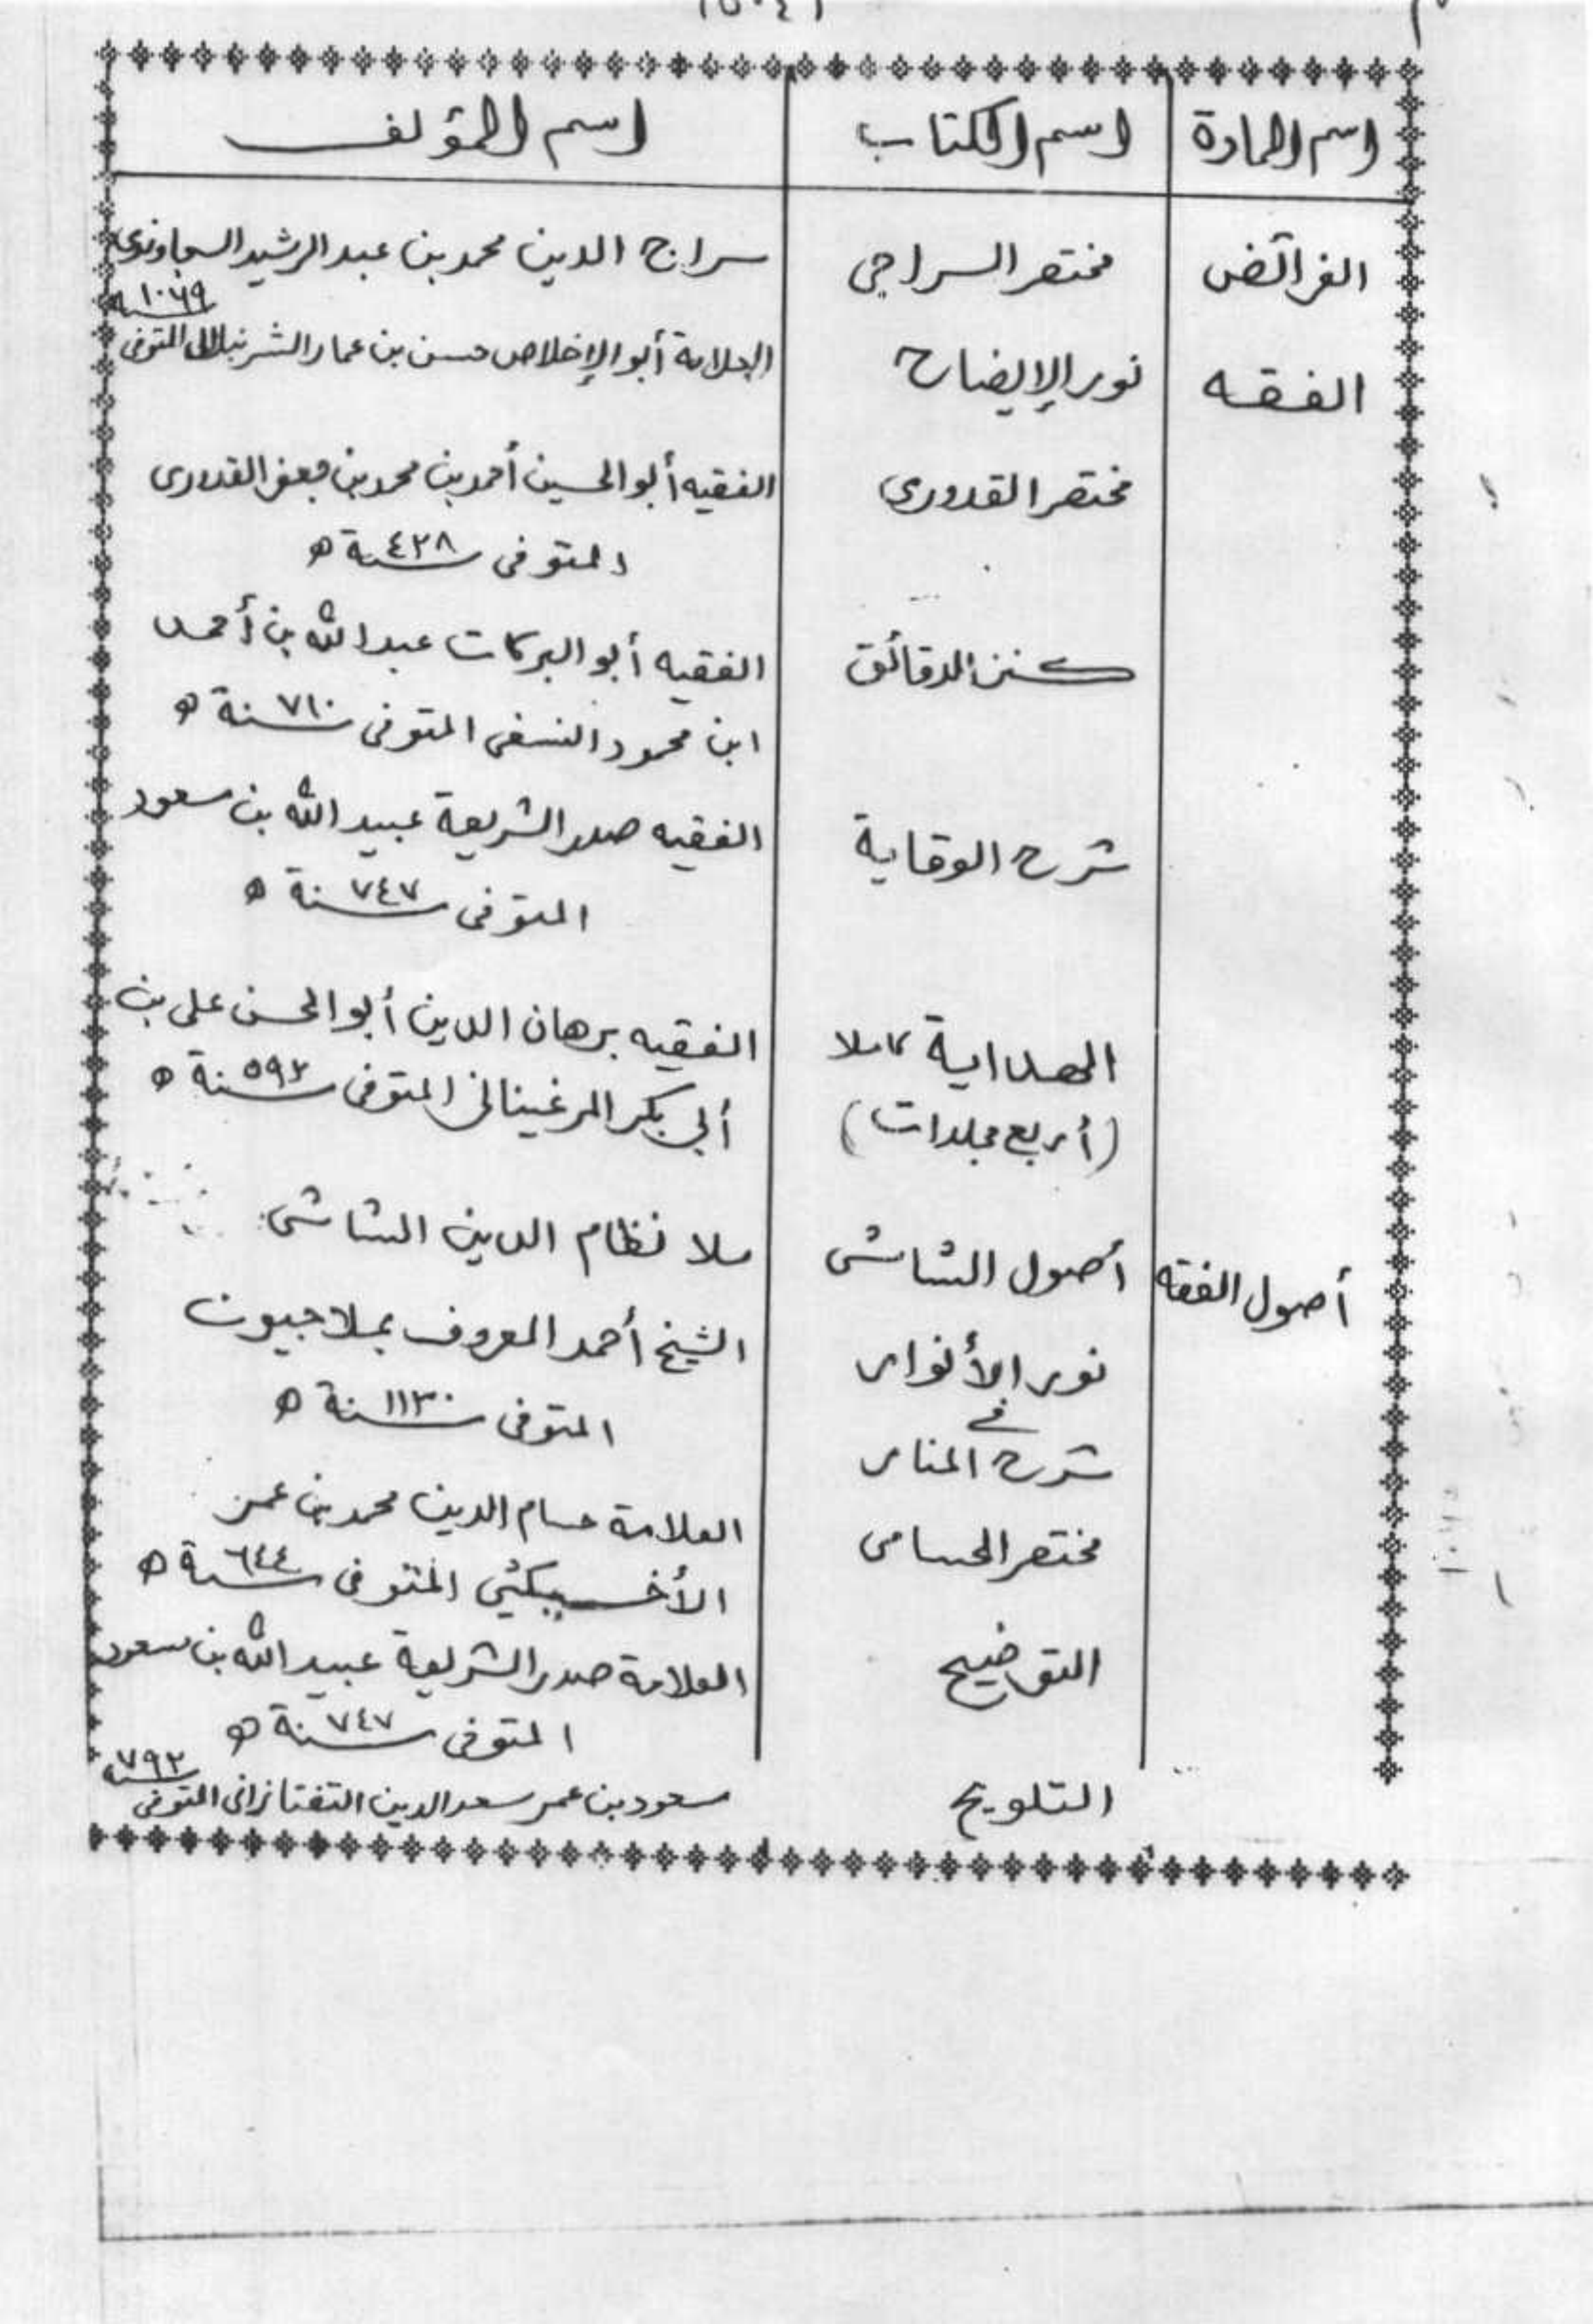 اسم المادة	اسم الكتاب	اسم المؤلف
الفرائض	مختصر السراجي	سراج الدين محمد بن عبد الرشيد السجاوندى
الفقه	نور الإيضاح	العلامة أبو الإخلاص حسن بن عمار الشرنبلالى المتوفى سنة ١٠٦٩
مختصر القدورى	الفقيه أبو الحسين أحمد بن محمد بن جعفر القدورى
المتوفى سنة ٤٢٨ ه
كنز الدقائق	الفقيه أبو البركات عبد الله بن أحمد
ابن محمود النسفى المتوفى سنة ٧١٠ ه
شرح الوقاية	الفقيه صدر الشريعة عبيد الله بن مسعود
المتوفى سنة ٧٤٧ ه
الهداية كاملا	الفقيه برهان الدين أبو الحسن على بن
(أربع مجلدات)	أبي بكر المرغينانى المتوفى سنة ٥٩٣ ه
أصول الفقه	أصول الشاشى	ملا نظام الدين الشاشى
نور الأنوار	الشيخ أحمد المعروف بملا جيون
في	المتوفى سنة ١١٣٠ ه
شرح المنار
مختصر الحسامى	العلامة حسام الدين محمد بن عمر
الأخسيكثي المتوفى سنة ٦٤٤ ه
التوضيح	العلامة صدر الشريعة عبيد الله بن مسعود
المتوفى سنة ٧٤٧ ه
التلويح	مسعود بن عمر سعد الدين التفتازانى المتوفى سنة ٧٩٢